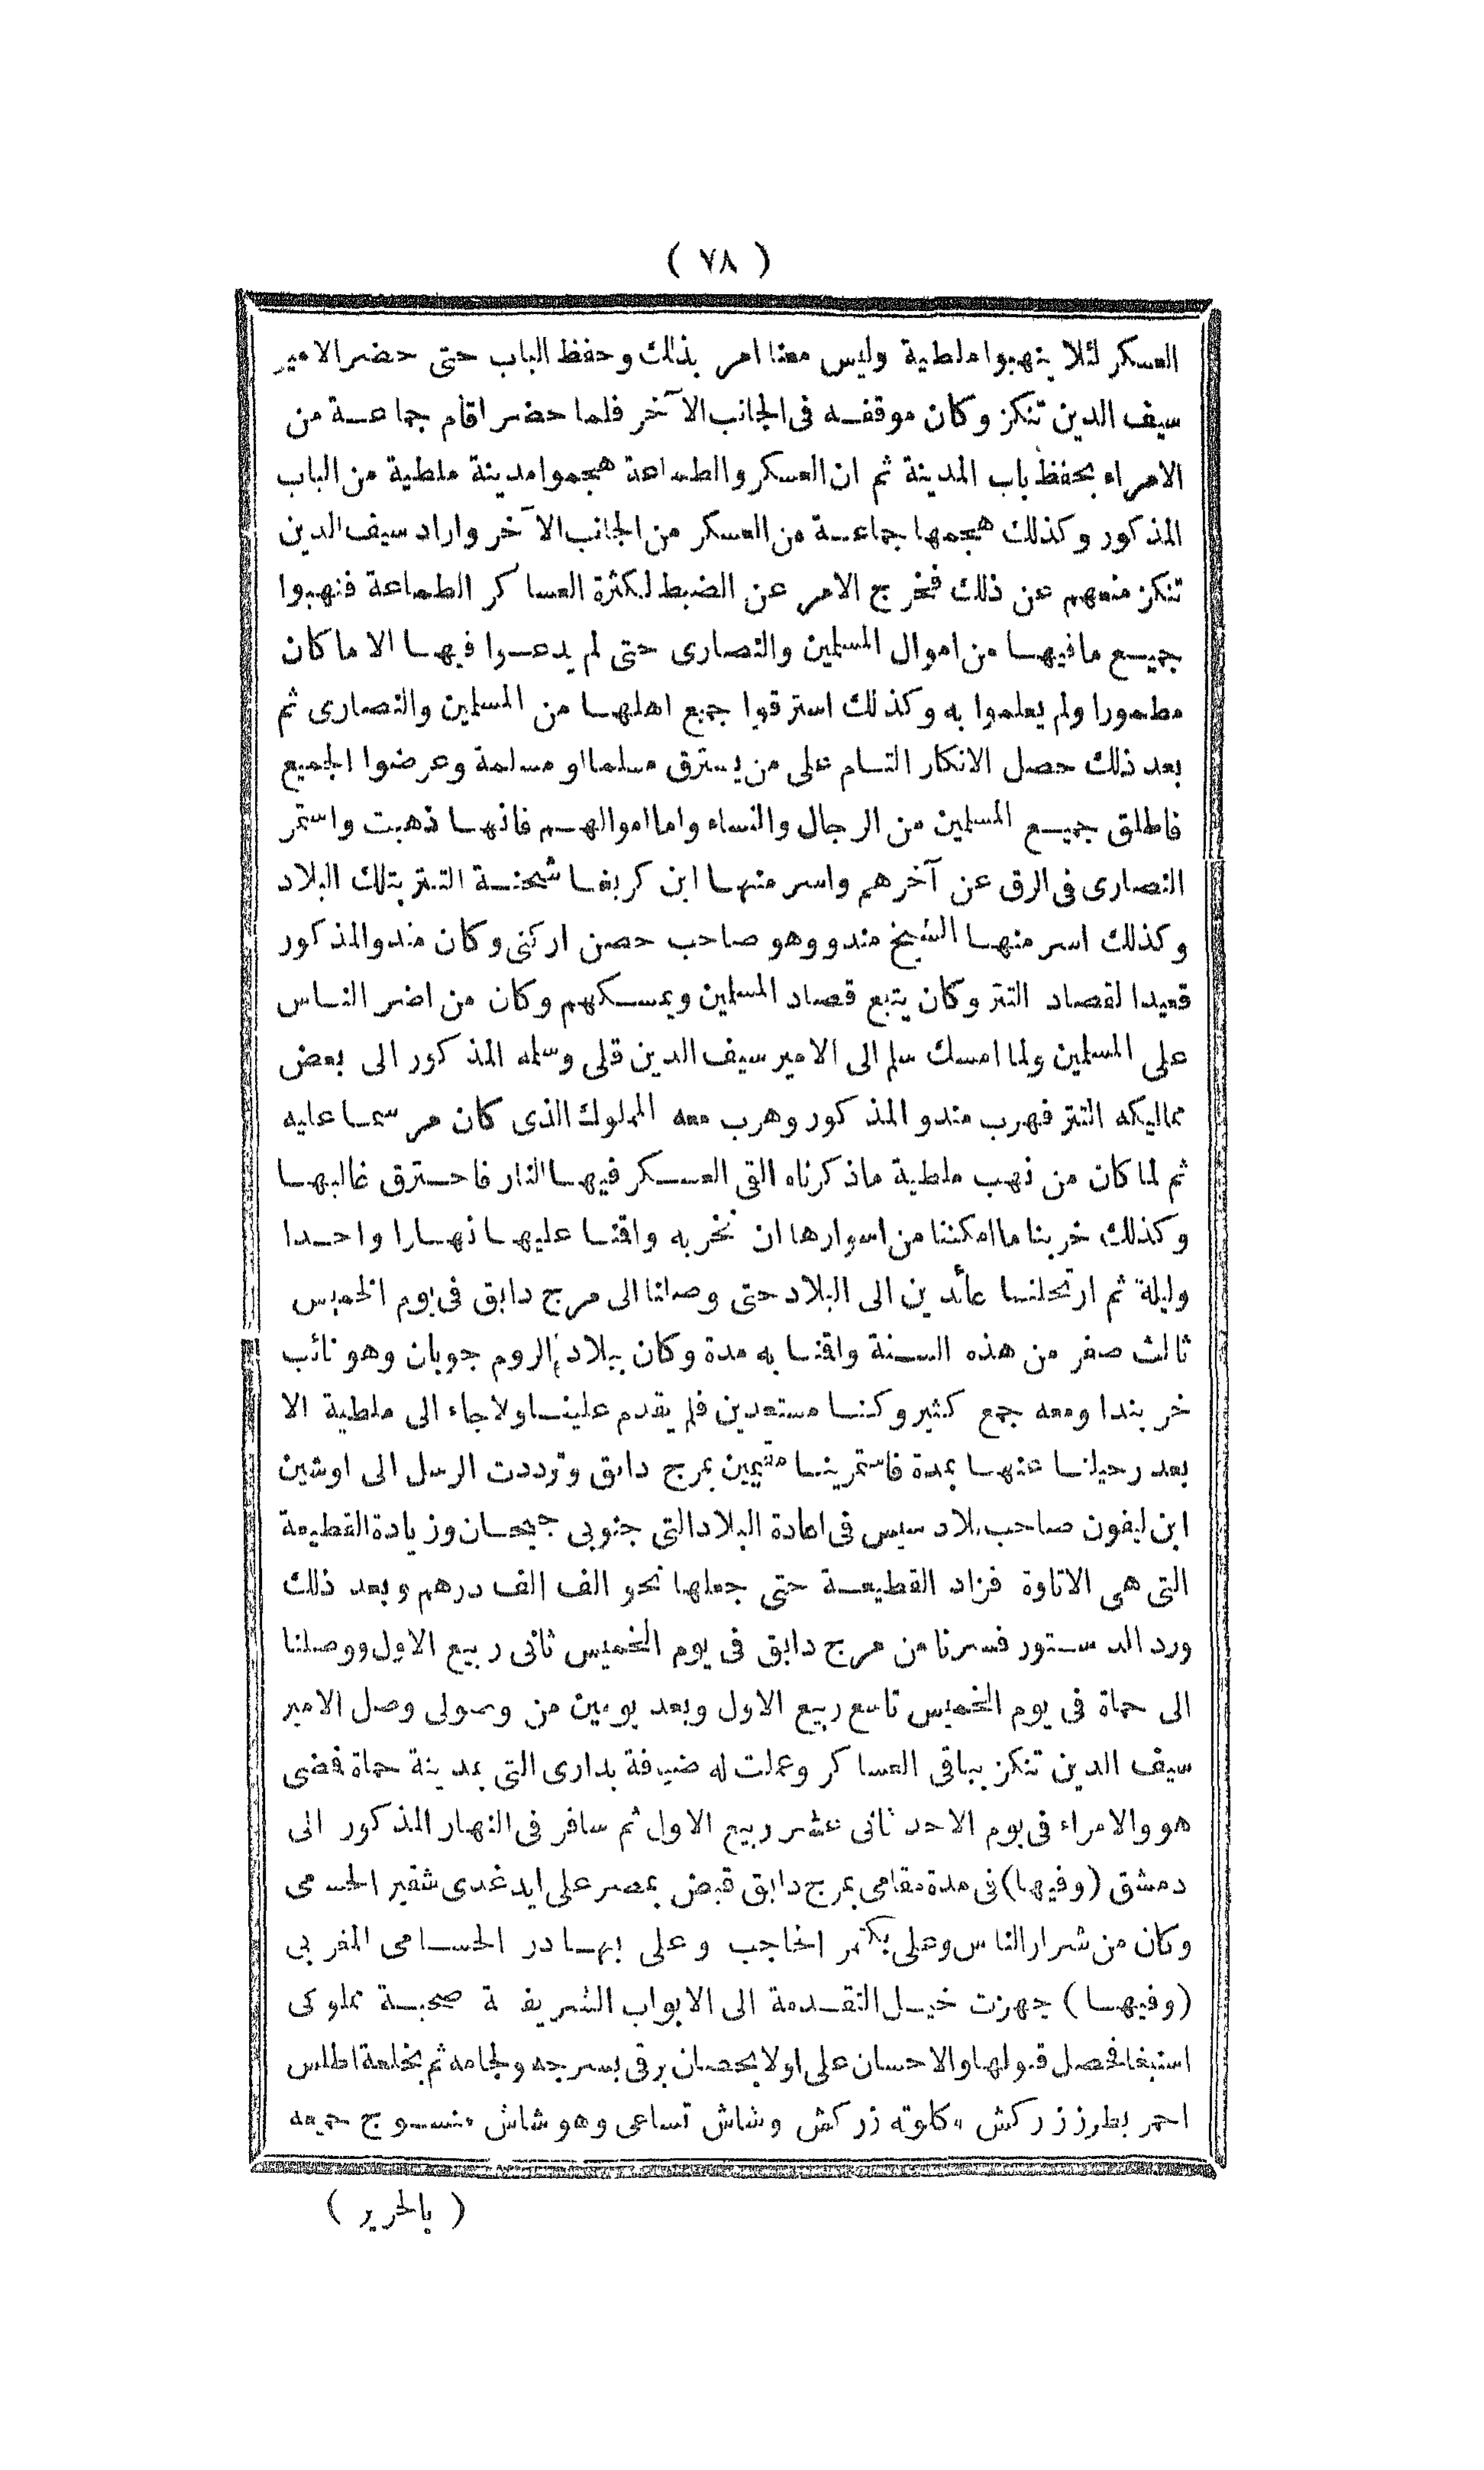 ( ٧٨ )
العسكر لئلا ينهبوا ملطية وليس معنا امر بذلك وحفظ الباب حتى حضر الامير
سيف الدين تنكز وكان موقفه فى الجانب الآخر فلما حضر اقام جماعة من
الامراء بحفظ باب المدينة ثم ان العسكر والطماعة هجموا مدينة ملطية من الباب
المذكور وكذلك هجمها جماعة من العسكر من الجانب الآخر واراد سيف الدين
تنكز منعهم عن ذلك فخرج الامر عن الضبط لكثرة العساكر الطماعة فنهبوا
جميع مافيها من اموال المسلمين والنصارى حتى لم يدعوا فيها الا ما كان
مطمورا ولم يعلموا به وكذلك استرقوا جميع اهلها من المسلمين والنصارى ثم
بعد ذلك حصل الانكار التام على من يسترق مسلما او مسلمة وعرضوا الجميع
فاطلق جميع المسلمين من الرجال والنساء واما اموالهم فانها ذهبت واستمر
النصارى فى الرق عن آخرهم واسر منها ابن كربغا شحنة التتر بتلك البلاد
وكذلك اسر منها الشيخ مندو وهو صاحب حصن اركنى وكان مندو المذكور
قعيدا لقصاد التتر وكان يتبع قصاد المسلمين ويمسكهم وكان من اضر الناس
على المسلمين ولما امسك سلم الى الامير سيف الدين قلى وسلمه المذكور الى بعض
مماليكه التتر فهرب مندو المذكور وهرب معه المملوك الذى كان مرسما عليه
ثم لما كان من نهب ملطية ماذكرناه القى العسكر فيها النار فاحترق غالبها
وكذلك خربنا ما امكننا من اسوارها ان نخربه واقمنا عليها نهارا واحدا
وليلة ثم ارتحلنا عائدين الى البلاد حتى وصلنا الى مرج دابق فى يوم الخميس
ثالث صفر من هذه السنة واقمنا به مدة وكان ببلاد الروم جوبان وهو نائب
خربندا ومعه جمع كثير وكنا مستعدين فلم يقدم علينا ولا جاء الى ملطية الا
بعد رحيلنا عنها بمدة فاستمرينا مقيمين بمرج دابق وترددت الرسل الى اوشين
ابن ليفون صاحب بلاد سيس فى اعادة البلاد التى جنوبى جيحان وزيادة القطيعة
التى هى الاتاوة فزاد القطيعة حتى جعلها نحو الف الف درهم وبعد ذلك
ورد الدستور فسرنا من مرج دابق فى يوم الخميس ثانى ربيع الاول ووصلنا
الى حماة فى يوم الخميس تاسع ربيع الاول وبعد يومين من وصولى وصل الامير
سيف الدين تنكز بباقى العساكر وعملت له ضيافة بدارى التى بمدينة حماة فضى
هو والامراء فى يوم الاحد ثانى عشر ربيع الاول ثم سافر فى النهار المذكور الى
دمشق (وفيها) فى مدة مقامى بمرج دابق قبض بمصر على ايدغدى شقير الحسامى
وكان من شرار الناس وعلى بكتمر الحاجب وعلى بهادر الحسامى المغربى
(وفيها) جهزت خيل التقدمة الى الابواب الشريفة صحبة مملوكى
استبغا فحصل قبولها والاحسان على اولا بحصان برقى بسرجه ولجامه ثم بخلعة اطلس
احمر بطرز زركش وكلوته زركش وشاش تساعى وهو شاش منسوج جميعه
( بالحرير )